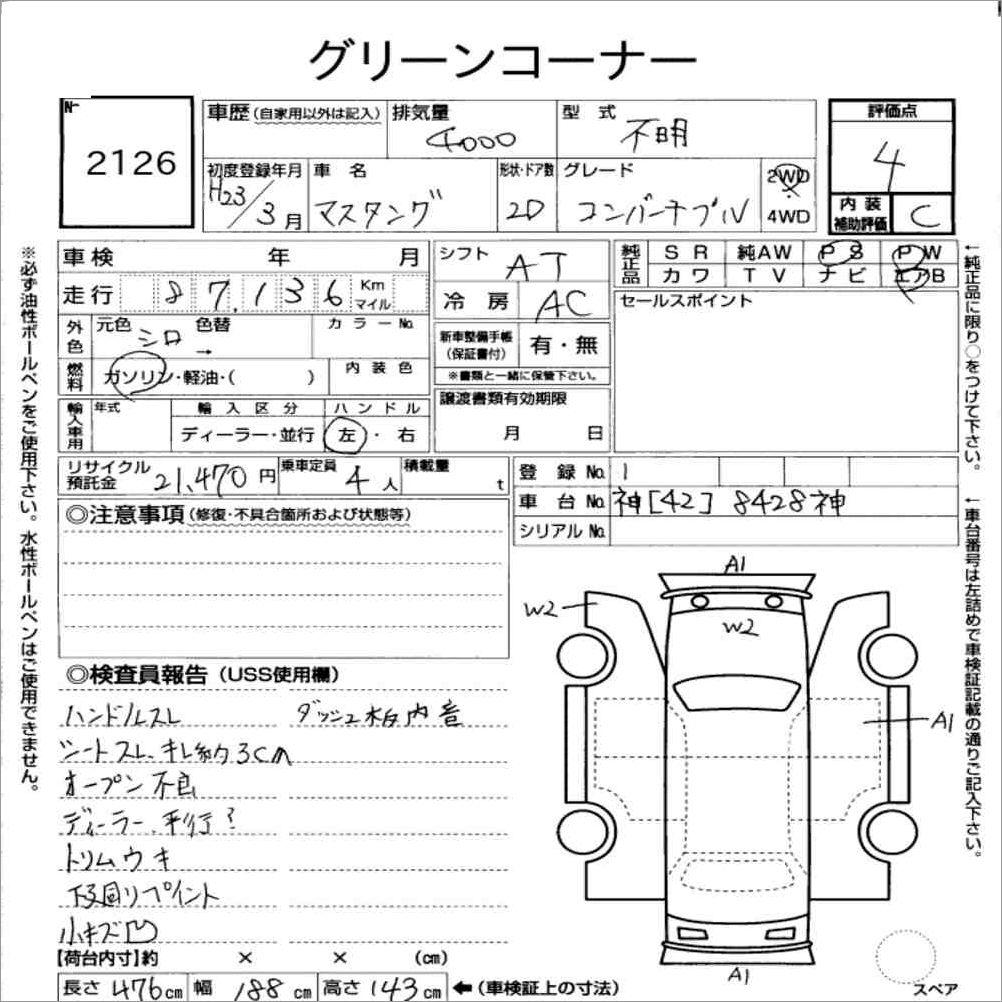 グリーンコーナー
No 2126
車歴(自家用以外は記入) 排気量 4000 型式 不明 評価点 4
初度登録年月 H23/3月 車名 マスタング 形状・ドア数 2D グレード コンバーチブル 2WD 4WD 内装補助評価 C
車検 年 月 シフト AT 純正品 SR 純AW PS PW
カワ TV ナビ エアB
走行 87,136 Km マイル 冷房 AC セールスポイント
外色 元色 シロ 色替 → カラーNo. 新車整備手帳(保証書付) 有・無
※書類と一緒に保管下さい。
燃料 ガソリン・軽油・( ) 内装色
輸入車用 年式 輸入区分 ハンドル 譲渡書類有効期限
ディーラー・並行 左・右 月 日
リサイクル預託金 21,470円 乗車定員 4人 積載量 t 登録No. 1
車台No. 神[42]8428神
シリアルNo.
◎注意事項(修復・不具合箇所および状態等)
※必ず油性ボールペンをご使用下さい。水性ボールペンはご使用できません。
←純正品に限り○をつけて下さい。
←車台番号は左詰めで車検証記載の通りご記入下さい。
A1
W2
W2
A1
A1
◎検査員報告(USS使用欄)
ハンドルスレ ダッシュ板内音
シートスレ、キレ約3cm
オープン不良
ディーラー、平行?
トリムウキ
下回リプイント
小キズ凹
【荷台内寸】約 × × (cm)
長さ 476cm 幅 188cm 高さ 143cm ←(車検証上の寸法)
スペア